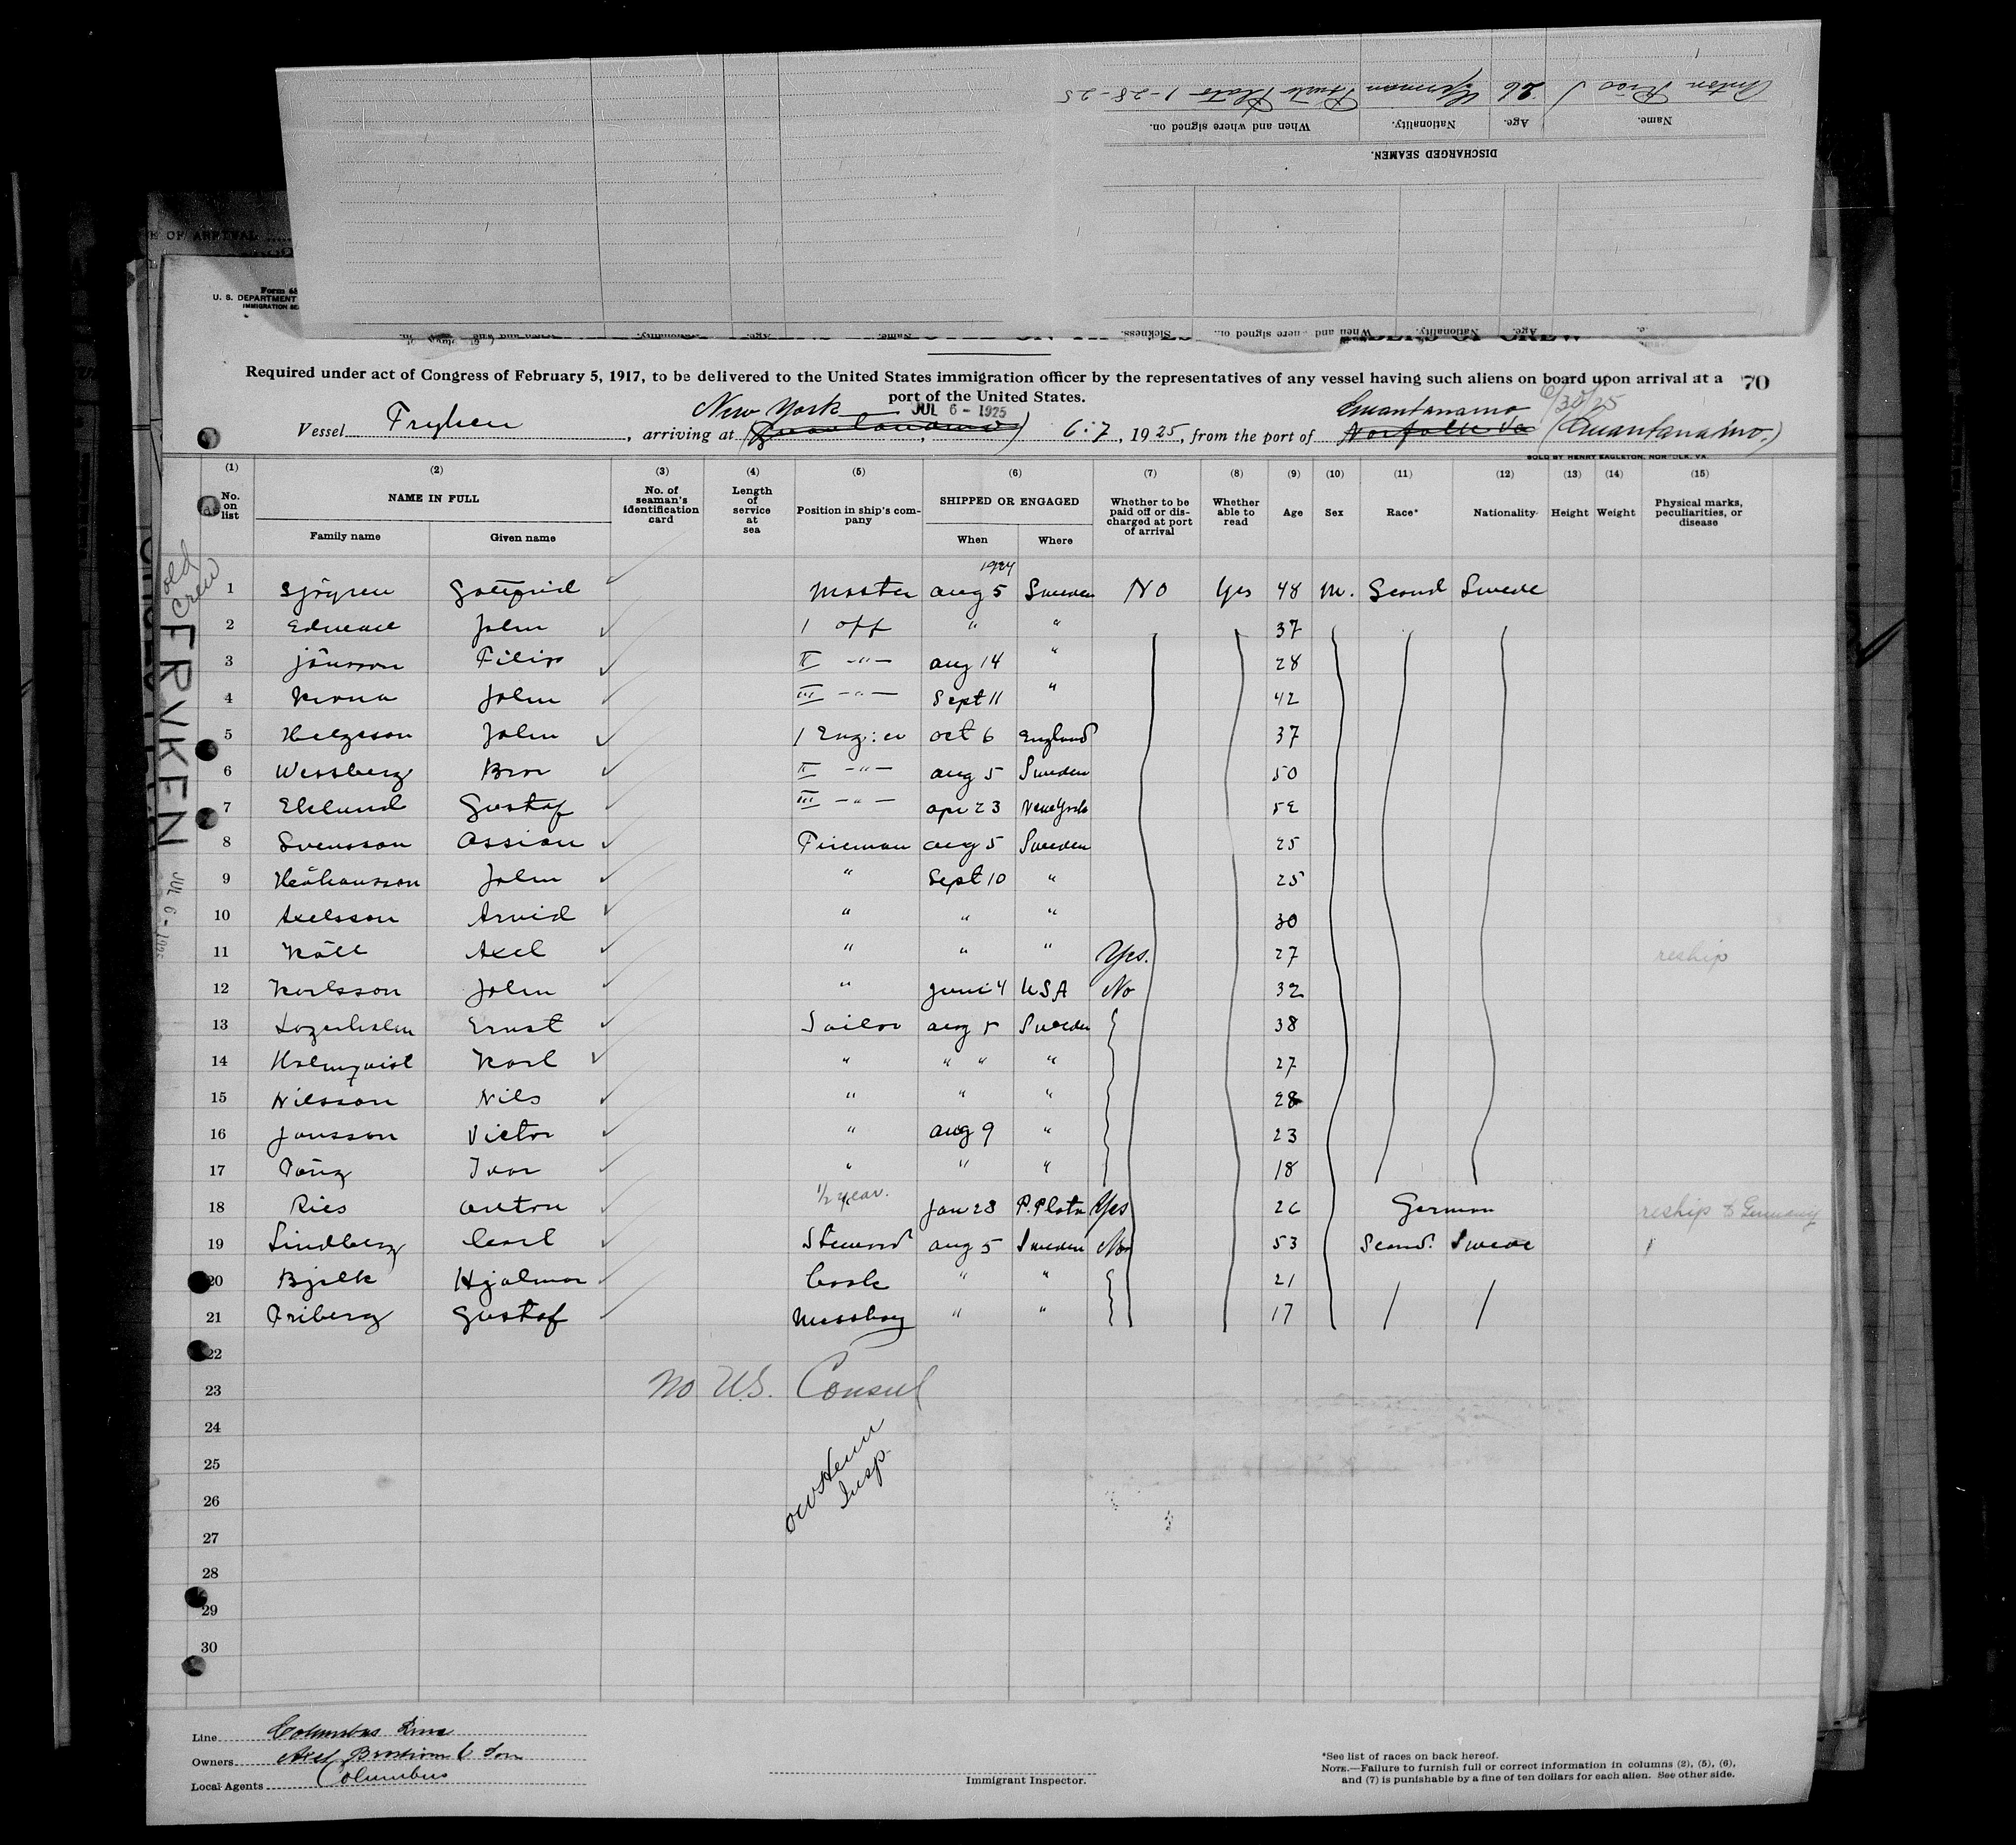 Anton Ries 26 German Puerto Plata 1-28-25
Name. Age. Nationality. When and where signed on.
DISCHARGED SEAMEN.
OF ARRIVAL
U. S. DEPARTMENT
Required under act of Congress of February 5, 1917, to be delivered to the United States immigration officer by the representatives of any vessel having such aliens on board upon arrival at a
port of the United States.
70
6/30/25
Vessel Fryken, arriving at New York JUL 6 - 1925 6:7, 1925, from the port of Guantanamo Norfolk Va (Guantanamo.)
SOLD BY HENRY EAGLETON, NORFOLK, VA.
(1) (2) (3) (4) (5) (6) (7) (8) (9) (10) (11) (12) (13) (14) (15)
No. on list NAME IN FULL Family name Given name No. of seaman's identification card Length of service at sea Position in ship's company SHIPPED OR ENGAGED When Where Whether to be paid off or discharged at port of arrival Whether able to read Age Sex Race* Nationality Height Weight Physical marks, peculiarities, or disease
old Crew
FRYKEN
JUL 6 - 1925
1924
1 Sjögren Gottfrid Master aug 5 Sweden No Yes 48 M. Scand Swede
2 John 1 off " " 37
3 Jönsson Filip II -"- aug 14 " 28
4 Krona John III -"- Sept 11 " 42
5 Helgsson John 1 Eng:er oct 6 England 37
6 Wessberg Bror II -"- aug 5 Sweden 50
7 Eklund Gustaf III -"- apr 23 New York 52
8 Svensson Ossian Fireman aug 5 Sweden 25
9 John " Sept 10 " 25
10 Axelsson Arvid " " " 30
11 Käll Axel " " " Yes. 27 reship
12 Karlsson John " juni 4 USA No 32
13 Lagerholm Ernst Sailor aug 5 Sweden 38
14 Holmqvist Karl " " " " 27
15 Nilsson Nils " " " 28
16 Jonsson Victor " aug 9 " 23
17 Ivar " " " 18
18 Ries Anton 1/2 year. " Jan 28 P. Plata Yes 26 German reship to Germany
19 Lindberg Carl Steward aug 5 Sweden No 53 Scand. Swede
20 Bjelk Hjalmar Cook " " 21
21 Friberg Gustaf Messboy " " 17
22
23 No U.S. Consul
24
25
Insp.
26
27
28
29
30
Line Columbus Line
Owners Axel Broström & Son
Local Agents Columbus
Immigrant Inspector.
*See list of races on back hereof.
NOTE.—Failure to furnish full or correct information in columns (2), (5), (6),
and (7) is punishable by a fine of ten dollars for each alien. See other side.